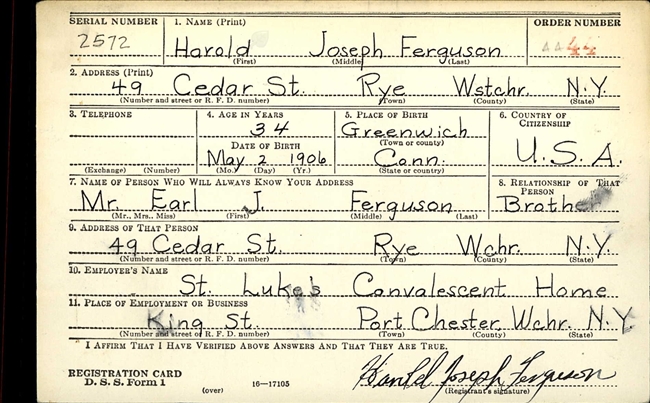 SERIAL NUMBER 1. NAME (Print) ORDER NUMBER
2572 Harold Joseph Ferguson
(First) (Middle) (Last)
2. ADDRESS (Print)
49 Cedar St. Rye Wstchr. N.Y.
(Number and street or R. F. D. number) (Town) (County) (State)
3. TELEPHONE 4. AGE IN YEARS 5. PLACE OF BIRTH 6. COUNTRY OF CITIZENSHIP
34 Greenwich
(Town or county)
DATE OF BIRTH U.S.A.
May 2 1906 Conn.
(Exchange) (Number) (Mo.) (Day) (Yr.) (State or country)
7. NAME OF PERSON WHO WILL ALWAYS KNOW YOUR ADDRESS 8. RELATIONSHIP OF THAT PERSON
Mr. Earl J. Ferguson Brother
(Mr., Mrs., Miss) (First) (Middle) (Last)
9. ADDRESS OF THAT PERSON
49 Cedar St. Rye Wchr. N.Y.
(Number and street or R. F. D. number) (Town) (County) (State)
10. EMPLOYER'S NAME
St. Luke's Convalescent Home
11. PLACE OF EMPLOYMENT OR BUSINESS
King St. Port Chester Wchr. N.Y.
(Number and street or R. F. D. number) (Town) (County) (State)
I AFFIRM THAT I HAVE VERIFIED ABOVE ANSWERS AND THAT THEY ARE TRUE.
REGISTRATION CARD
D. S. S. Form 1 (over) 16—17105 Harold Joseph Ferguson
(Registrant's signature)